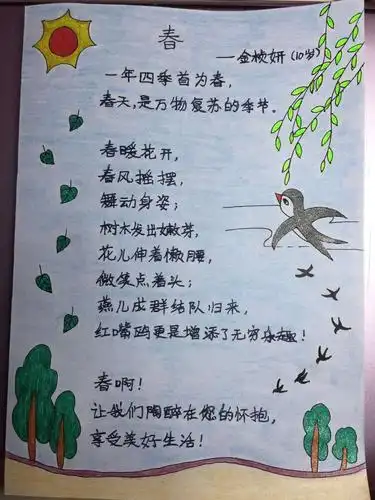 春
—金桢妍(10岁)
一年四季首为春,
春天,是万物复苏的季节.
春暖花开,
春风摇摆,
舞动身姿;
树木发出嫩芽,
花儿伸着懒腰,
微笑点着头;
燕儿成群结队归来,
红嘴鸥更是增添了无穷乐趣!
春啊!
让我们陶醉在您的怀抱,
享受美好生活!